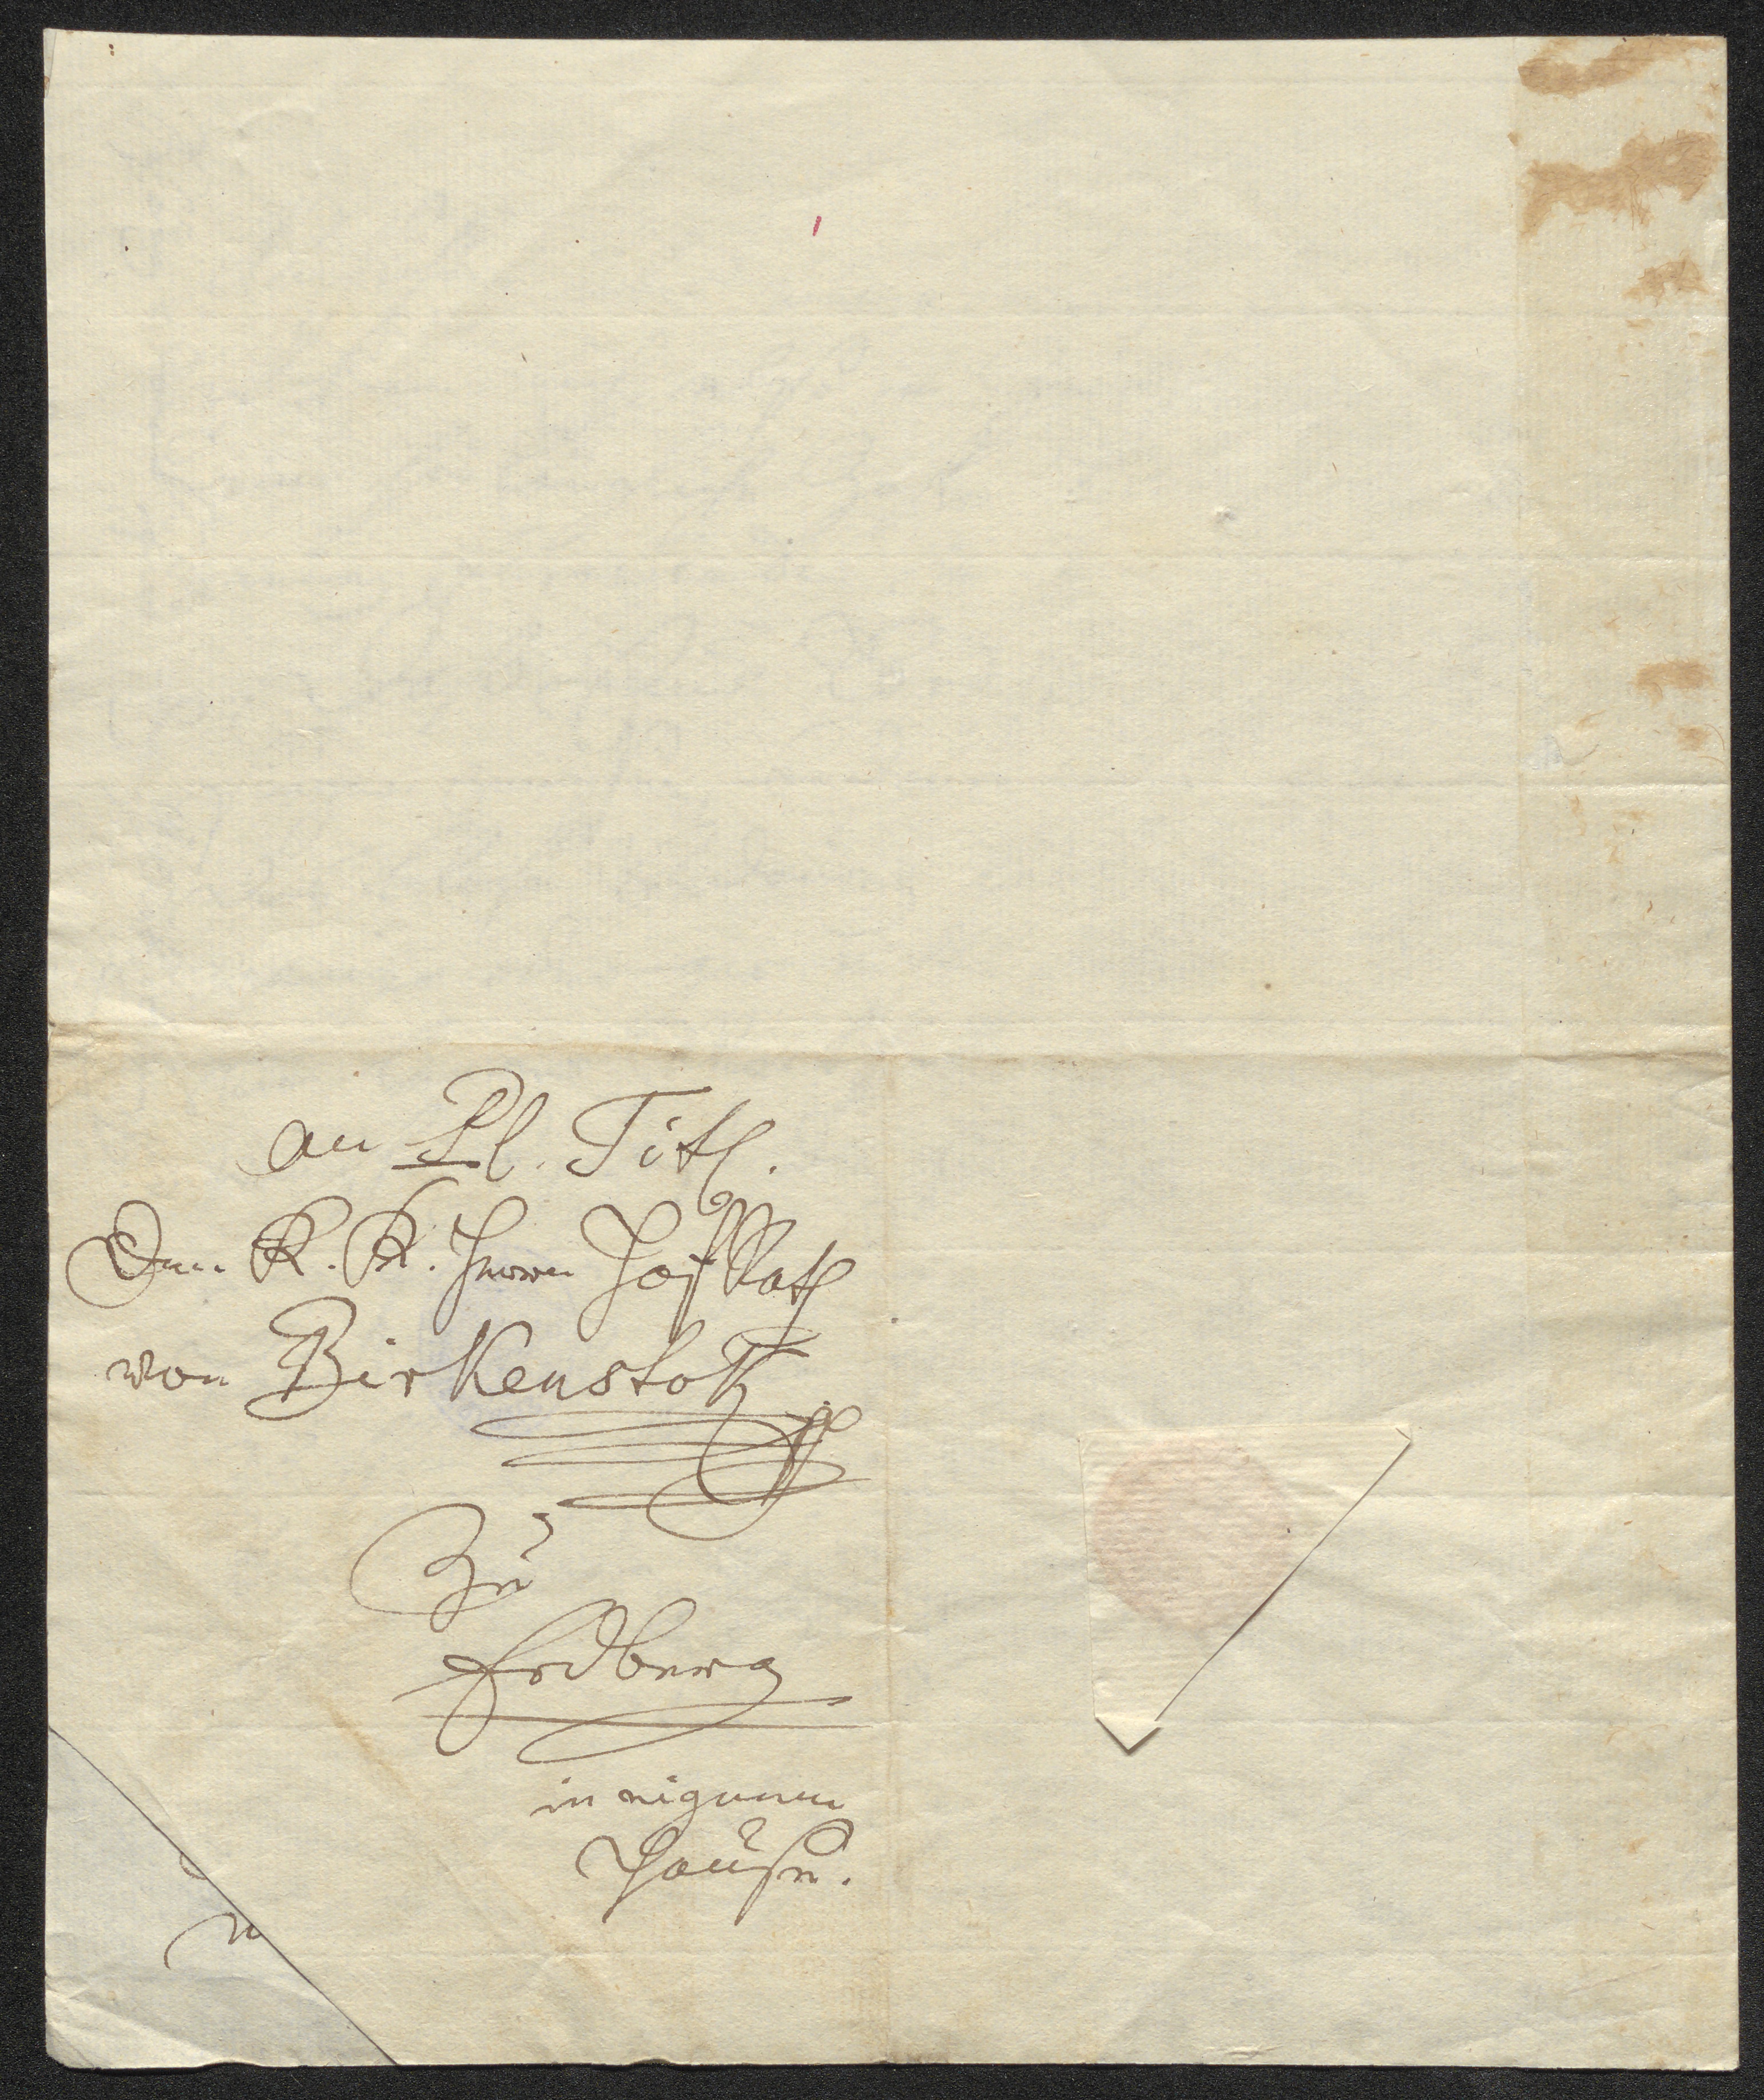 an Pl. Titl.
Den K. K. Herrn HofRath
von Birkenstok
Zu
Erdberg
in eigenem
Hauße.